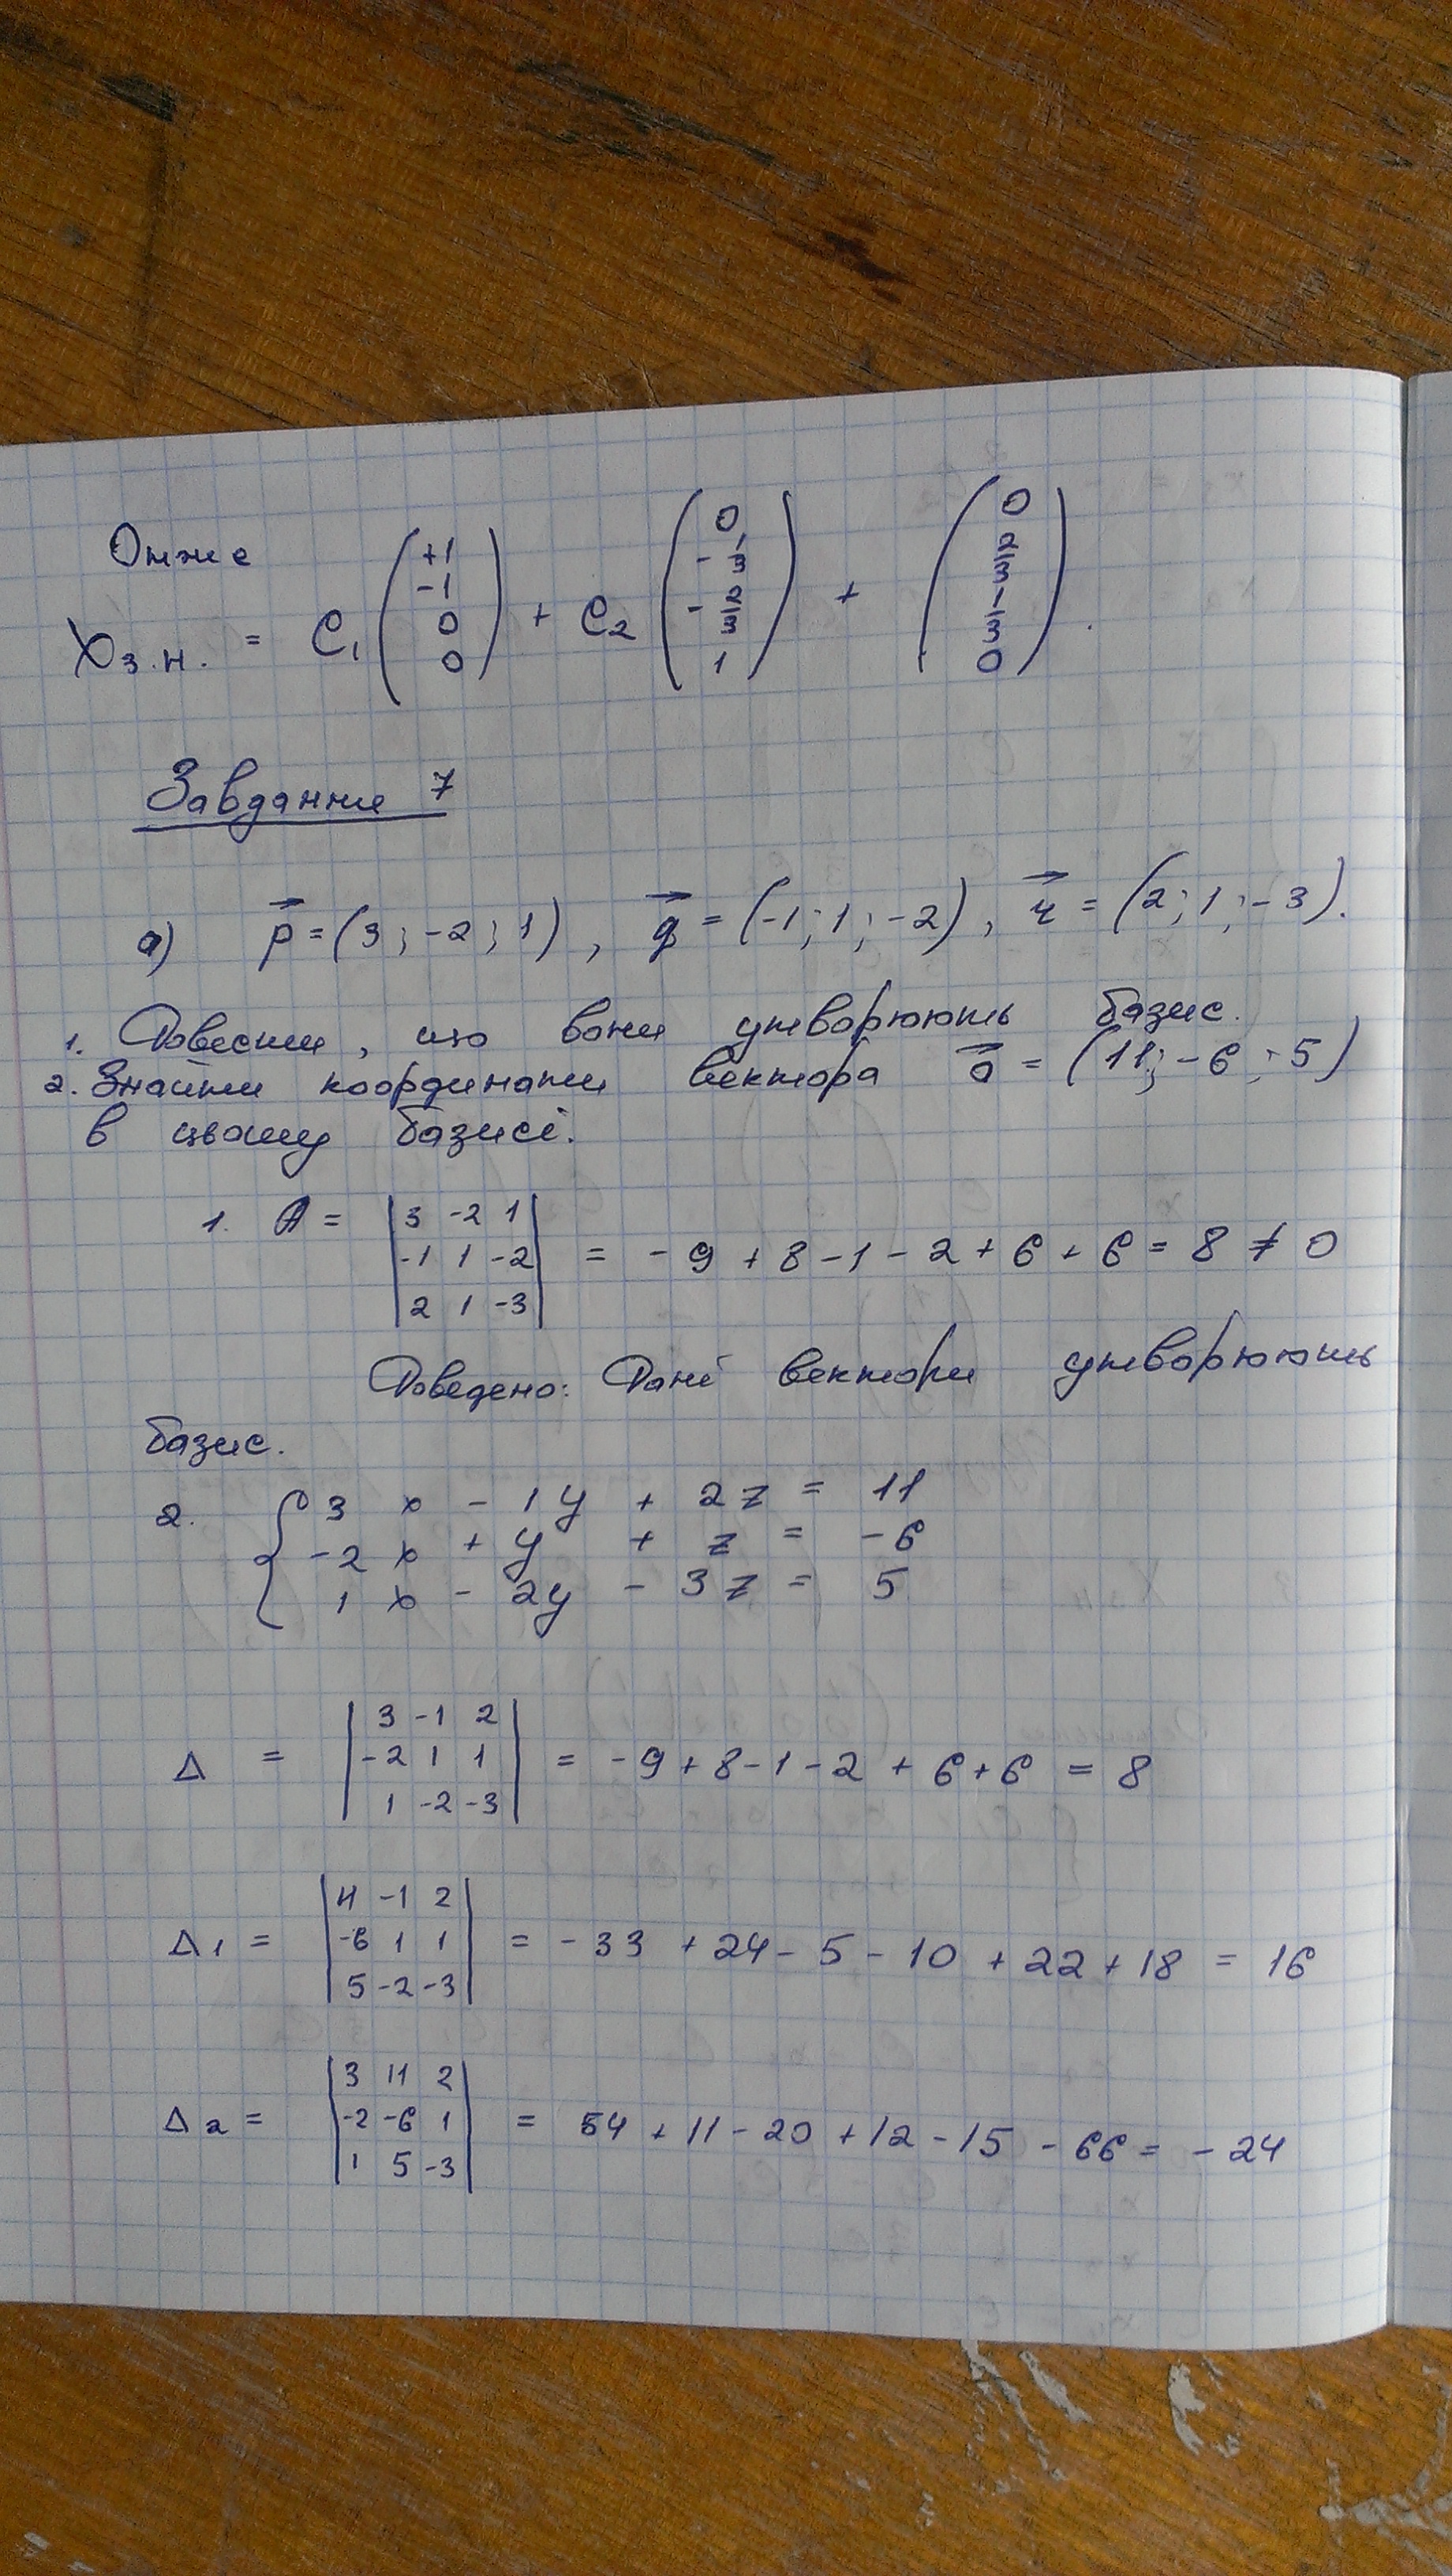 Отже
Xз.н. = C1 (+1 -1 0 0) + C2 (0 -1/3 -2/3 1) + (0 2/3 1/3 0).
Завдання 7
а) p = (3; -2; 1), q = (-1; 1; -2), r = (2; 1; -3).
1. Довести, що вони утворюють базис.
2. Знайти координати вектора a = (11; -6; 5)
в цьому базисі.
1. A = |3 -2 1|
|-1 1 -2| = -9 + 8 - 1 - 2 + 6 + 6 = 8 ≠ 0
|2 1 -3|
Доведено: Дані вектори утворюють
базис.
2. { 3x - 1y + 2z = 11
-2x + y + z = -6
1x - 2y - 3z = 5
Δ = |3 -1 2|
|-2 1 1| = -9 + 8 - 1 - 2 + 6 + 6 = 8
|1 -2 -3|
Δ1 = |11 -1 2|
|-6 1 1| = -33 + 24 - 5 - 10 + 22 + 18 = 16
|5 -2 -3|
Δ2 = |3 11 2|
|-2 -6 1| = 54 + 11 - 20 + 12 - 15 - 66 = -24
|1 5 -3|